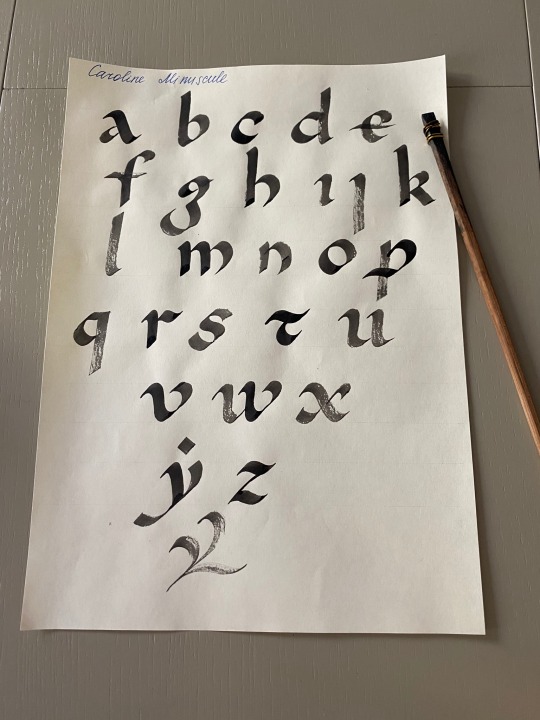 Caroline Minuscule
a b c d e
f g h i j k
l m n o p
q r s t u
v w x
y z